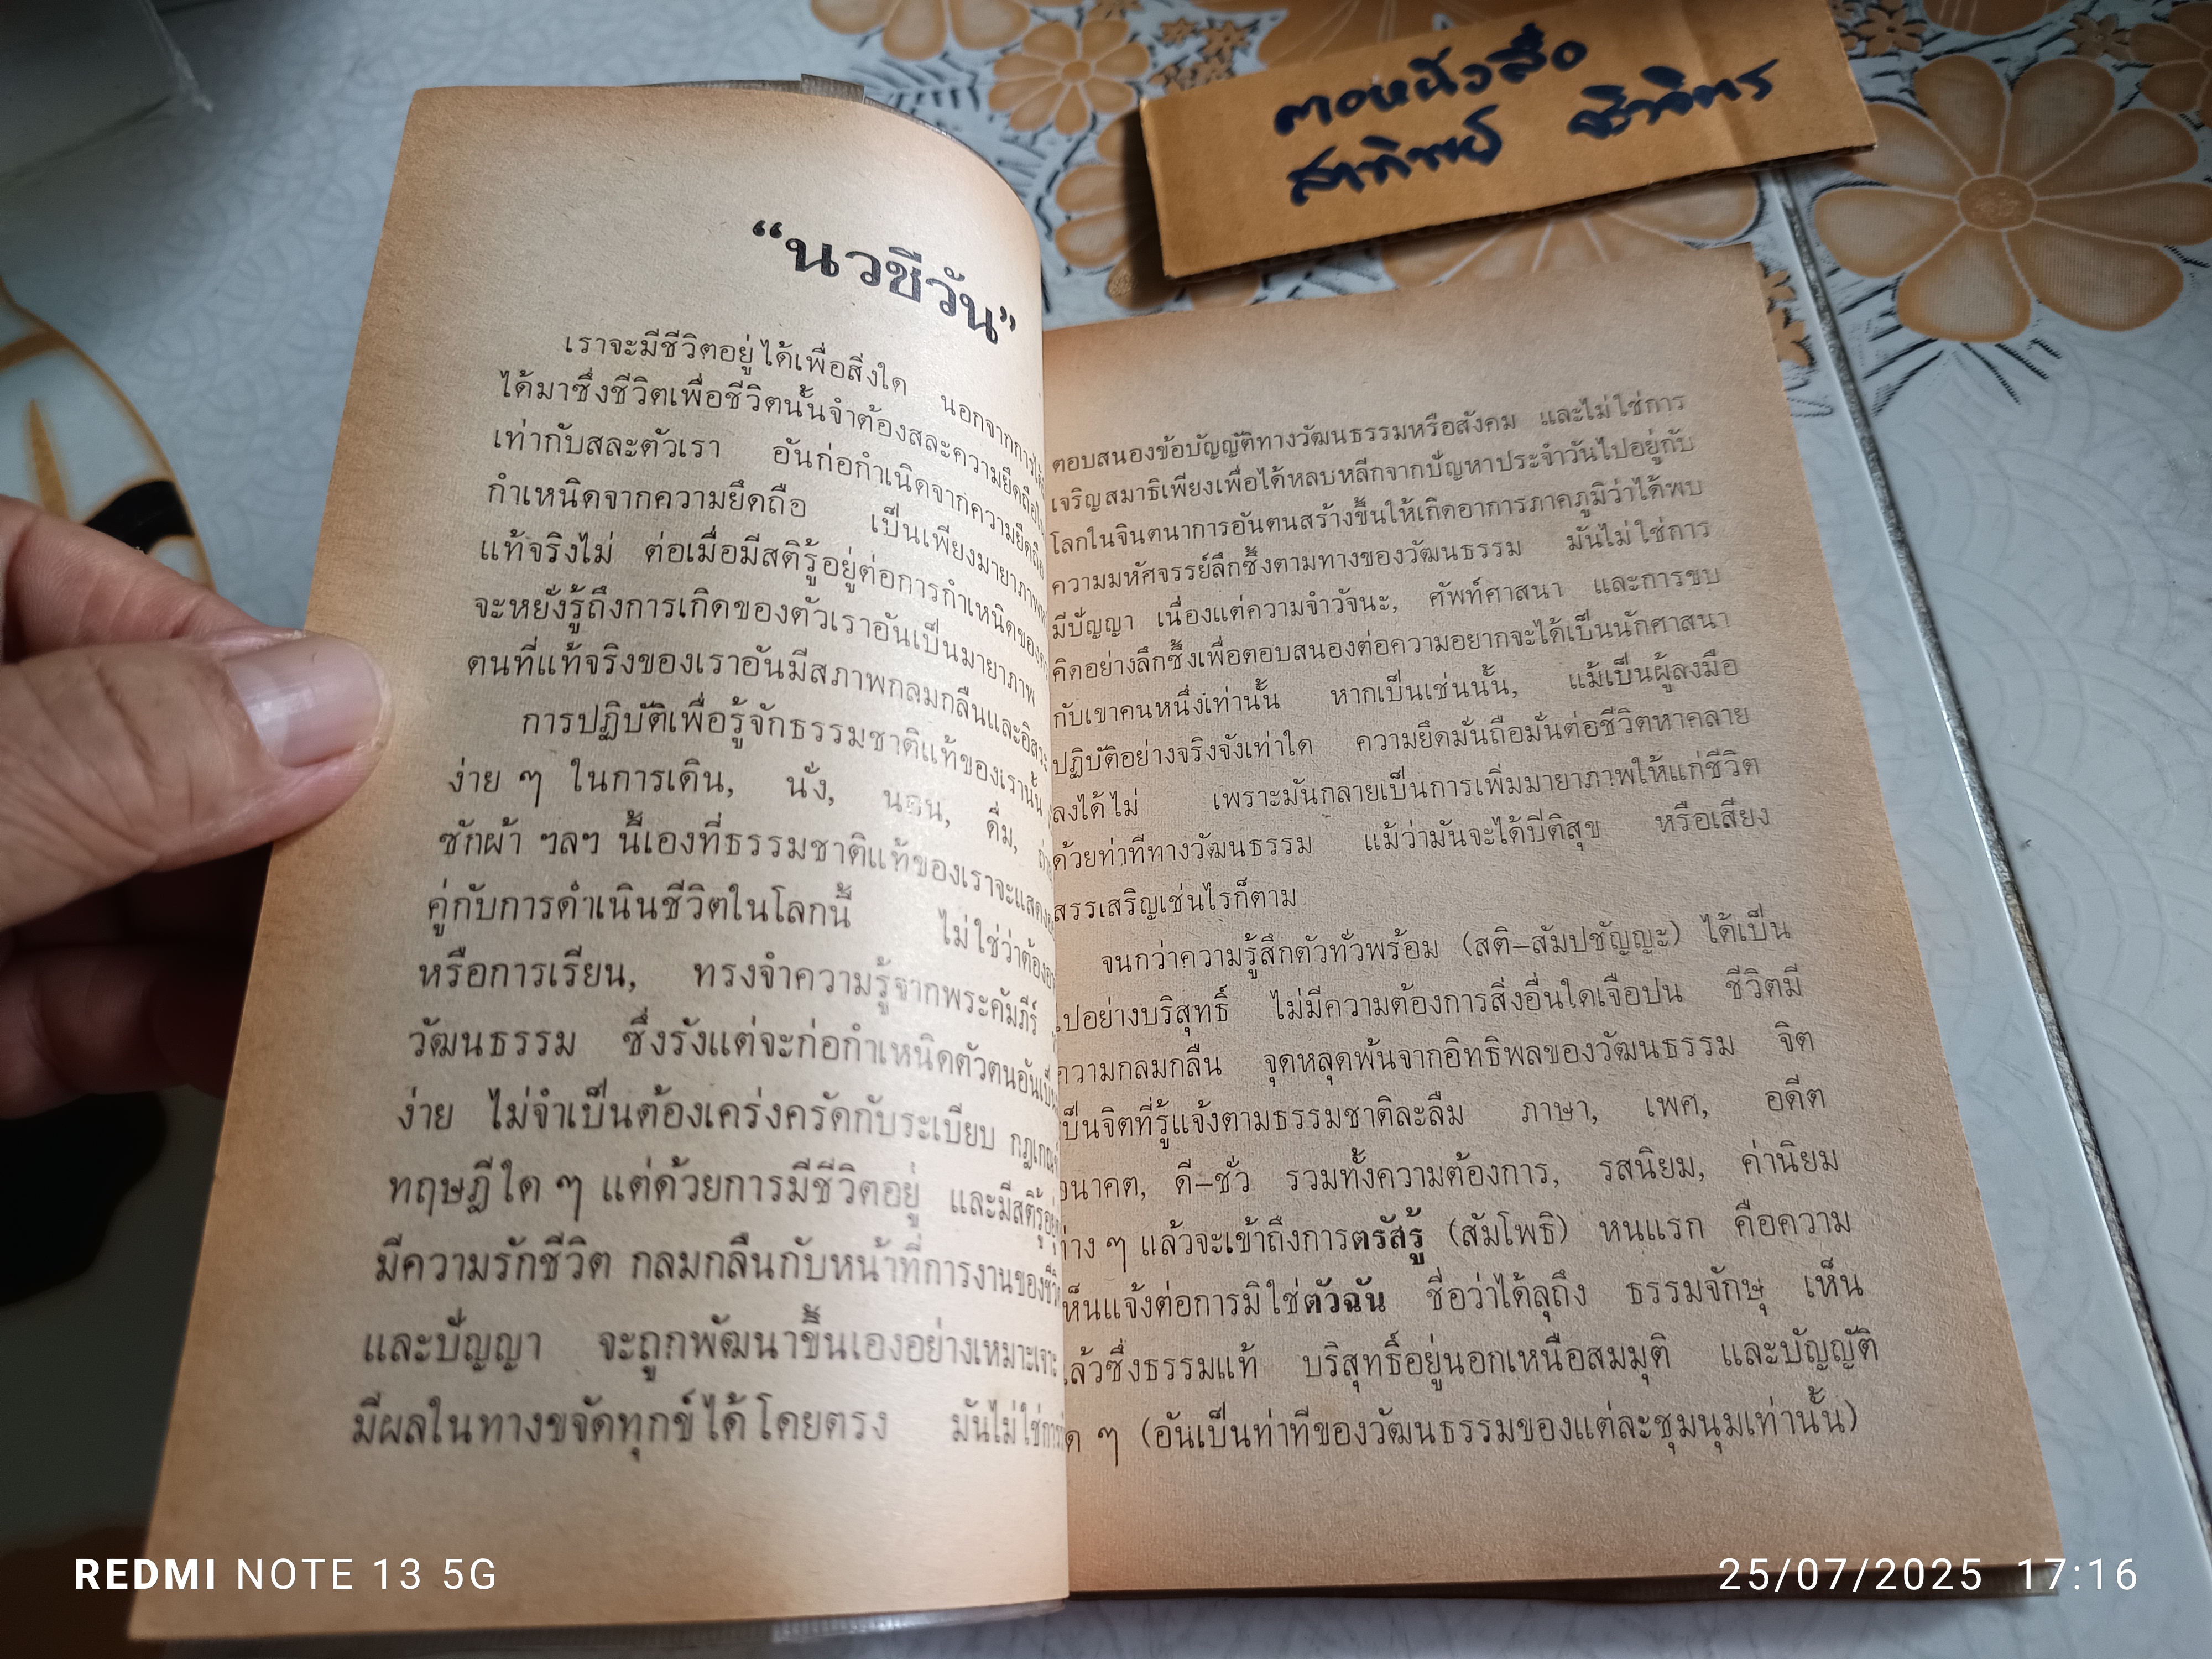 ฅอหนังสือ
“นวชีวัน”
เราจะมีชีวิตอยู่ได้เพื่อสิ่งใด นอกจากการได้
ได้มาซึ่งชีวิตเพื่อชีวิตนั้นจำต้องสละความยึดถือ
เท่ากับสละตัวเรา อันก่อกำเนิดจากความยึดถือ
กำเหนิดจากความยึดถือ เป็นเพียงมายาภาพ
แท้จริงไม่ ต่อเมื่อมีสติรู้อยู่ต่อการกำเหนิดของ
จะหยั่งรู้ถึงการเกิดของตัวเราอันเป็นมายาภาพ
ตนที่แท้จริงของเราอันมีสภาพกลมกลืนและอิสระ
การปฏิบัติเพื่อรู้จักธรรมชาติแท้ของเรานั้น
ง่าย ๆ ในการเดิน, นั่ง, นอน, ดื่ม,
ซักผ้า ฯลฯ นี้เองที่ธรรมชาติแท้ของเราจะแสดง
คู่กับการดำเนินชีวิตในโลกนี้ ไม่ใช่ว่าต้อง
หรือการเรียน, ทรงจำความรู้จากพระคัมภีร์
วัฒนธรรม ซึ่งรังแต่จะก่อกำเหนิดตัวตนอันเป็น
ง่าย ไม่จำเป็นต้องเคร่งครัดกับระเบียบ
ทฤษฎีใด ๆ แต่ด้วยการมีชีวิตอยู่ และมีสติรู้
มีความรักชีวิต กลมกลืนกับหน้าที่การงานของ
และปัญญา จะถูกพัฒนาขึ้นเองอย่างเหมาะเจาะ
มีผลในทางขจัดทุกข์ได้โดยตรง มันไม่ใช่
ตอบสนองข้อบัญญัติทางวัฒนธรรมหรือสังคม และไม่ใช่การ
เจริญสมาธิเพียงเพื่อได้หลบหลีกจากปัญหาประจำวันไปอยู่กับ
โลกในจินตนาการอันตนสร้างขึ้นให้เกิดอาการภาคภูมิว่าได้พบ
ความมหัศจรรย์ลึกซึ้งตามทางของวัฒนธรรม มันไม่ใช่การ
มีปัญญา เนื่องแต่ความจำวัจนะ, ศัพท์ศาสนา และการขบ
คิดอย่างลึกซึ้งเพื่อตอบสนองต่อความอยากจะได้เป็นนักศาสนา
กับเขาคนหนึ่งเท่านั้น หากเป็นเช่นนั้น, แม้เป็นผู้ลงมือ
ปฏิบัติอย่างจริงจังเท่าใด ความยึดมั่นถือมั่นต่อชีวิตหาคลาย
ลงได้ไม่ เพราะมันกลายเป็นการเพิ่มมายาภาพให้แก่ชีวิต
ด้วยท่าทีทางวัฒนธรรม แม้ว่ามันจะได้ปีติสุข หรือเสียง
สรรเสริญเช่นไรก็ตาม
จนกว่าความรู้สึกตัวทั่วพร้อม (สติ–สัมปชัญญะ) ได้เป็น
ไปอย่างบริสุทธิ์ ไม่มีความต้องการสิ่งอื่นใดเจือปน ชีวิตมี
ความกลมกลืน จุดหลุดพ้นจากอิทธิพลของวัฒนธรรม จิต
เป็นจิตที่รู้แจ้งตามธรรมชาติละลืม ภาษา, เพศ, อดีต
อนาคต, ดี–ชั่ว รวมทั้งความต้องการ, รสนิยม, ค่านิยม
ต่าง ๆ แล้วจะเข้าถึงการตรัสรู้ (สัมโพธิ) หนแรก คือความ
เห็นแจ้งต่อการมิใช่ตัวฉัน ชื่อว่าได้ลุถึง ธรรมจักษุ เห็น
แล้วซึ่งธรรมแท้ บริสุทธิ์อยู่นอกเหนือสมมุติ และบัญญัติ
ใด ๆ (อันเป็นท่าทีของวัฒนธรรมของแต่ละชุมนุมเท่านั้น)
REDMI NOTE 13 5G
25/07/2025 17:16